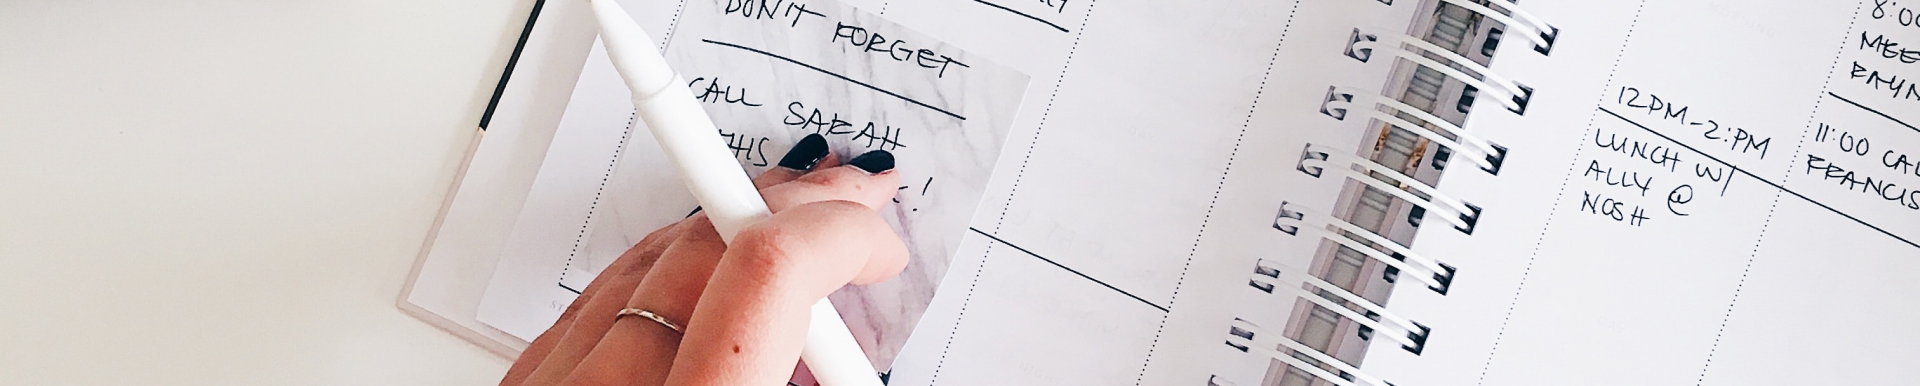 DON'T FORGET
CALL SARAH
THIS
!
12PM-2:PM
LUNCH W/
ALLY @
NOSH
8:00
11:00
FRANCIS